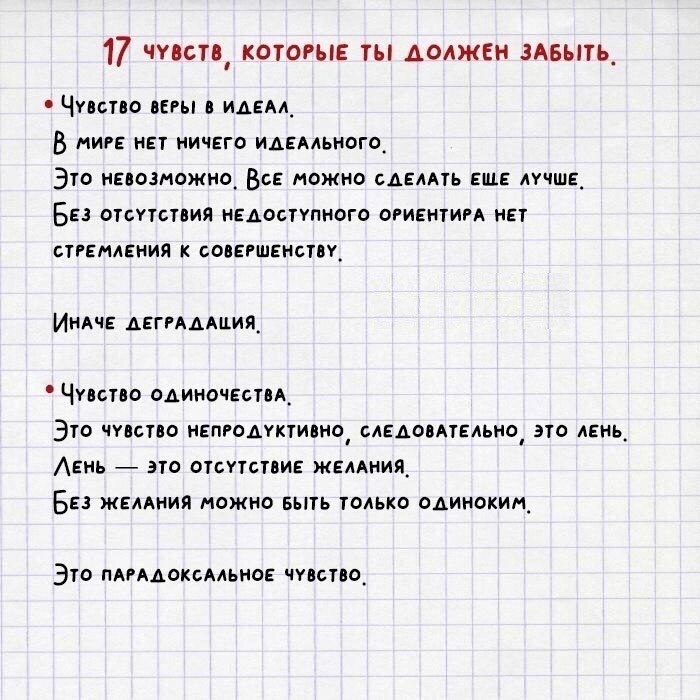 17 чувств, которые ты должен забыть.
• Чувство веры в идеал.
В мире нет ничего идеального.
Это невозможно. Все можно сделать еще лучше.
Без отсутствия недоступного ориентира нет
стремления к совершенству.
Иначе деградация.
• Чувство одиночества.
Это чувство непродуктивно, следовательно, это лень.
Лень — это отсутствие желания.
Без желания можно быть только одиноким.
Это парадоксальное чувство.